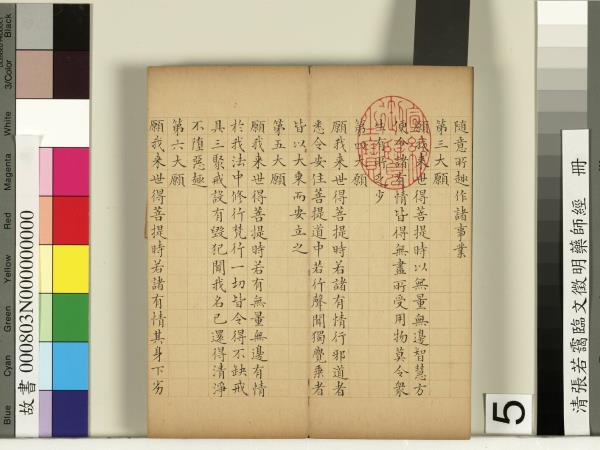 隨意所趣作諸事業
第三大願
願我來世得菩提時以無量無邊智慧方
便令諸有情皆得無盡所受用物莫令衆
生有所乏少
第四大願
願我來世得菩提時若諸有情行邪道者
悉令安住菩提道中若行聲聞獨覺乘者
皆以大乘而安立之
第五大願
願我來世得菩提時若有無量無邊有情
於我法中修行梵行一切皆令得不缺戒
具三聚戒設有毀犯聞我名已還得清淨
不墮惡趣
第六大願
願我來世得菩提時若諸有情其身下劣
清張若靄臨文徵明藥師經 冊
5
故書 000803N000000000
Blue
Cyan
Green
Yellow
Red
Magenta
White
3/Color
Black